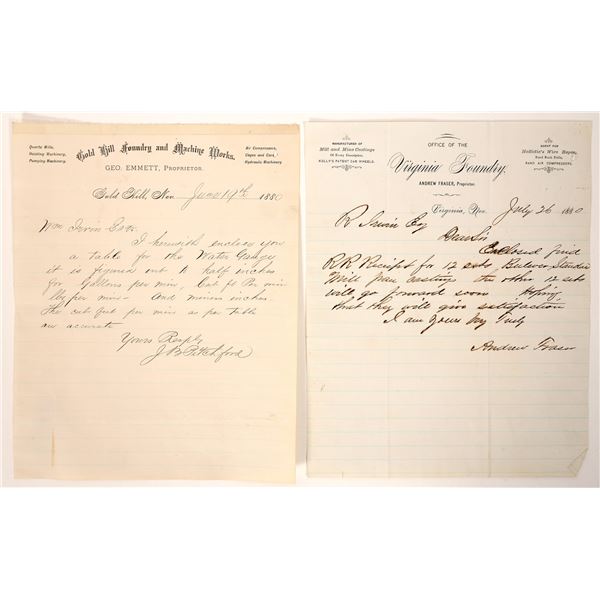 Quartz Mills,
Hoisting Machinery,
Pumping Machinery.
Gold Hill Foundry and Machine Works.
GEO. EMMETT, PROPRIETOR.
Air Compressors,
Cages and Cars,
Hydraulic Machinery.
Gold Hill, Nev. June 19th 1880
Wm Irvin Esq.
I herewith enclose you
a table for the Water Gauge
it is figured out ½ half inches
for Gallons per min, Cub ft Per min
lbs per min And miners inches.
The cub feet per min as per table
are accurate
Yours Resply
J B Pitchford
MANUFACTURER OF
Mill and Mine Castings
Of Every Description,
KELLY'S PATENT CAR WHEELS.
OFFICE OF THE
Virginia Foundry,
ANDREW FRASER, Proprietor.
AGENT FOR
Hallidie's Wire Ropes,
Rand Rock Drills,
RAND AIR COMPRESSORS.
Virginia, Nev. July 26 1880
R Irwin Esq
Dear Sir
Enclosed find
RR Receipt for 12 sets, Bulwer, Standard
Mill pan casting the other 12 sets
will go forward soon Hoping
that they will give satisfaction
I am Yours Very Truly
Andrew Fraser